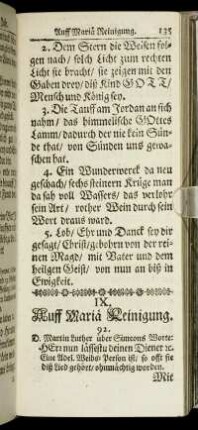 Auff Mariä Reinigung. 135
2. Dem Stern die Weisen fol-
gen nach/ solch Licht zum rechten
Licht sie bracht/ sie zeigen mit den
Gaben drey/ diß Kind GOTT/
Mensch und König sey.
3. Die Tauff am Jordan an sich
nahm/ das himmelische GOttes
Lamm/ dadurch der nie kein Sün-
de that/ von Sünden uns gewa-
schen hat.
4. Ein Wunderwerck da neu
geschach/ sechs steinern Krüge man
da sah voll Wassers/ das verlohr
sein Art/ rother Wein durch sein
Wort draus ward.
5. Lob/ Ehr und Danck sey dir
gesagt/ Christ/ gebohrn von der rei-
nen Magd/ mit Vater und dem
heilgen Geist/ von nun an biß in
Ewigkeit.
IX.
Auff Mariä Reinigung.
92.
D. Martin Luther über Simeons Worte:
HErr nun lässestu deinen Diener ꝛc.
Eine Adel. Weibs-Person ist/ so offt sie
diß Lied gehöret/ ohnmächtig worden.
Mit